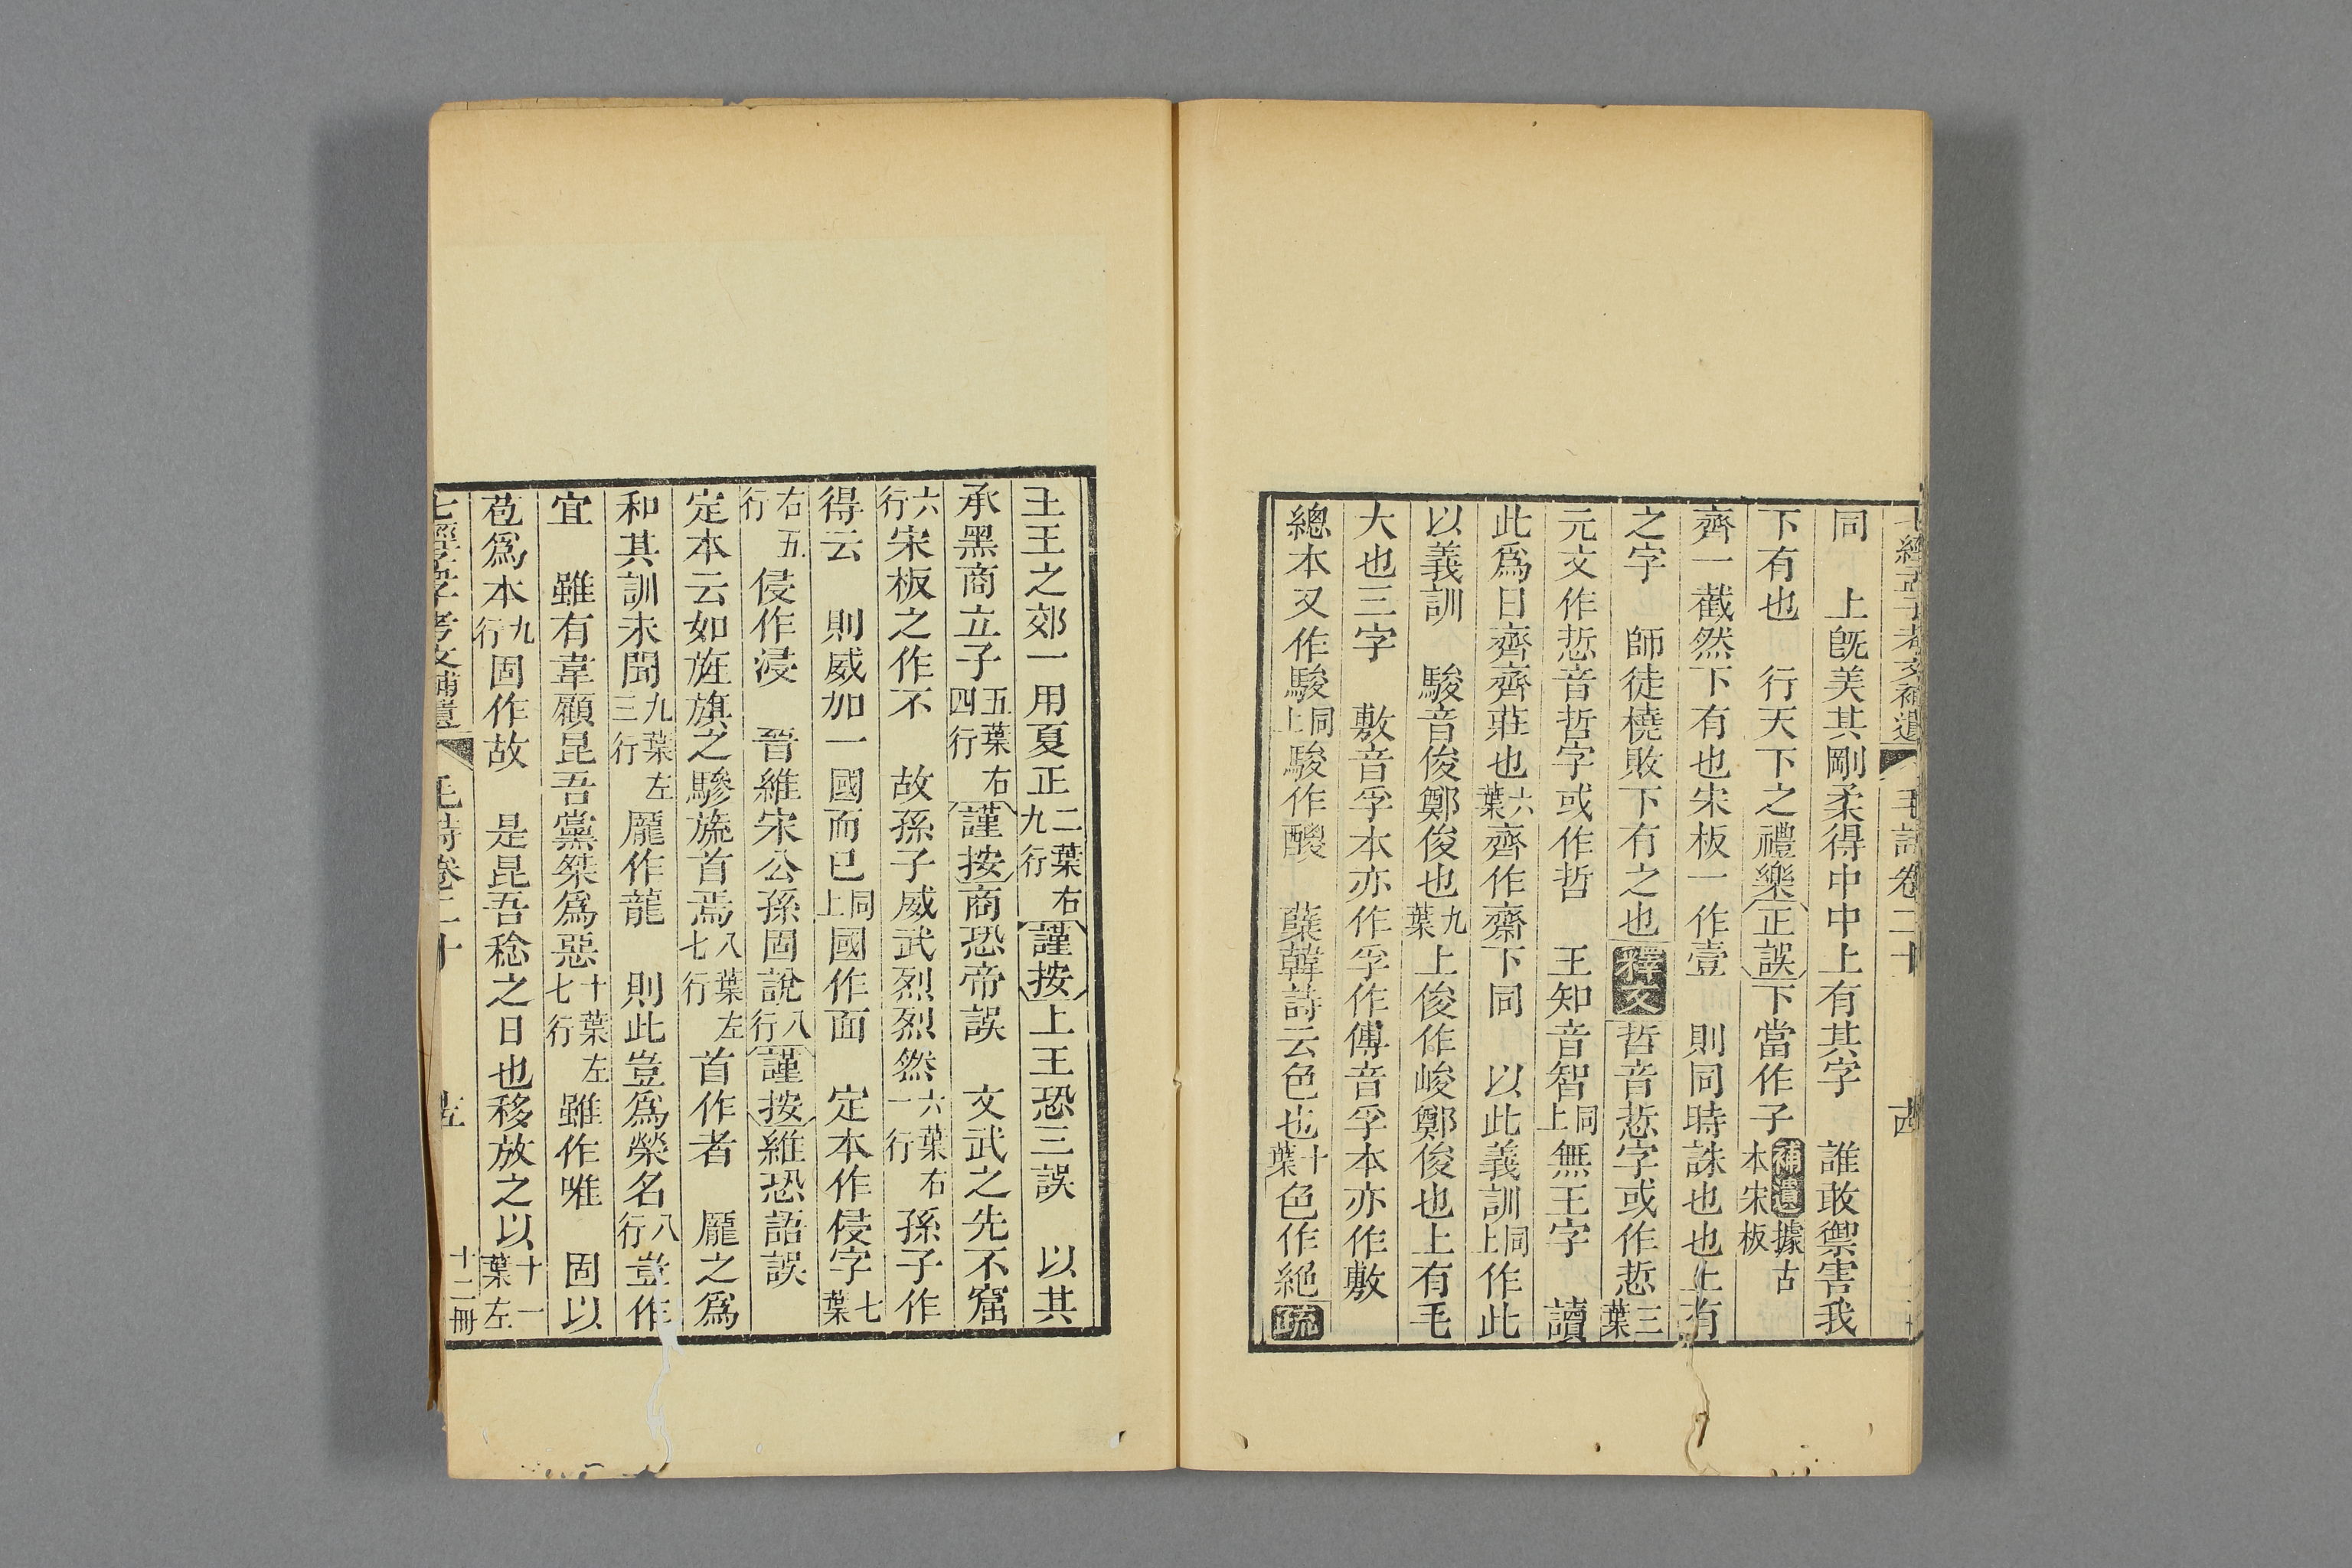 七經孟子考文補遺 毛詩卷二十 古
同　上旣美其剛柔得中中上有其字　誰敢禦害我
下有也　行天下之禮樂正誤下當作子補遺據古本宋板
齊一截然下有也宋板一作壹　則同時誅也也上有
之字　師徒橈敗下有之也釋文哲音悊字或作悊三葉
元文作悊音哲字或作哲　王知音智同上無王字　讀
此爲日齊齊莊也六葉齊作齋下同　以此義訓同上作此
以義訓　駿音俊鄭俊也九葉上俊作峻鄭俊也上有毛
大也三字　敷音孚本亦作孚作傅音孚本亦作敷
總本又作駿同上駿作醙　蘖韓詩云色也十葉色作絕疏
王王之郊一用夏正二葉右九行謹按上王恐三誤　以其
承黑商立子五葉右四行謹按商恐帝誤　文武之先不窋
六行宋板之作不　故孫子威武烈烈然六葉右一行孫子作
得云　則威加一國而已同上國作面　定本作侵字七葉
右五行侵作浸　晉維宋公孫固說八行謹按維恐語誤
定本云如旌旗之驂旒首焉八葉左七行首作者　厖之爲
和其訓未聞九葉左三行厖作龍　則此豈爲榮名八行豈作
宜　雖有韋顧昆吾黨桀爲惡十葉左七行雖作唯　固以
苞爲本九行固作故　是昆吾稔之日也移放之以十一葉左
七經孟子考文補遺 毛詩卷二十 十二冊